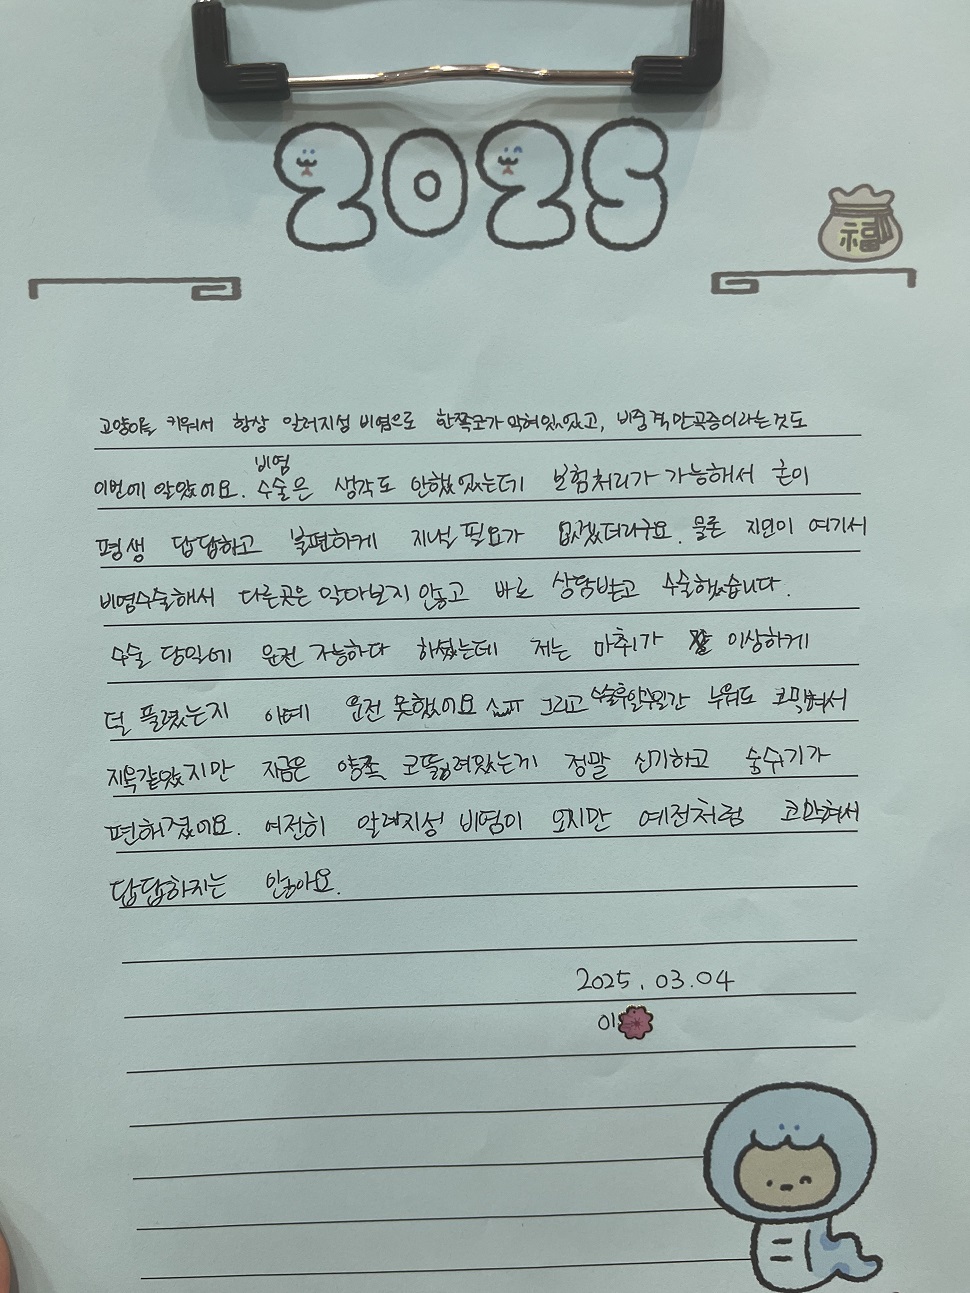 2025
福
고양이를 키워서 항상 알러지성 비염으로 한쪽코가 막혀있었고, 비중격만곡증이라는것도
비염
이번에 알았어요. 수술은 생각도 안했었는데 보험처리가 가능해서 굳이
평생 답답하고 불편하게 지낼 필요가 없겠더라구요. 물론 지인이 여기서
비염수술해서 다른곳은 알아보지 않고 바로 상담받고 수술했습니다.
수술 당일에 운전 가능하다 하셨는데 저는 마취가 이상하게
덜 풀렸는지 아예 운전 못했어요 ㅠㅠ 그리고 수술후일주일간 누워도 코막혀서
지옥같았지만 지금은 양쪽 코뚫려있는게 정말 신기하고 숨쉬기가
편해졌어요. 여전히 알레지성 비염이 오지만 예전처럼 코막혀서
답답하지는 않아요.
2025.03.04
이